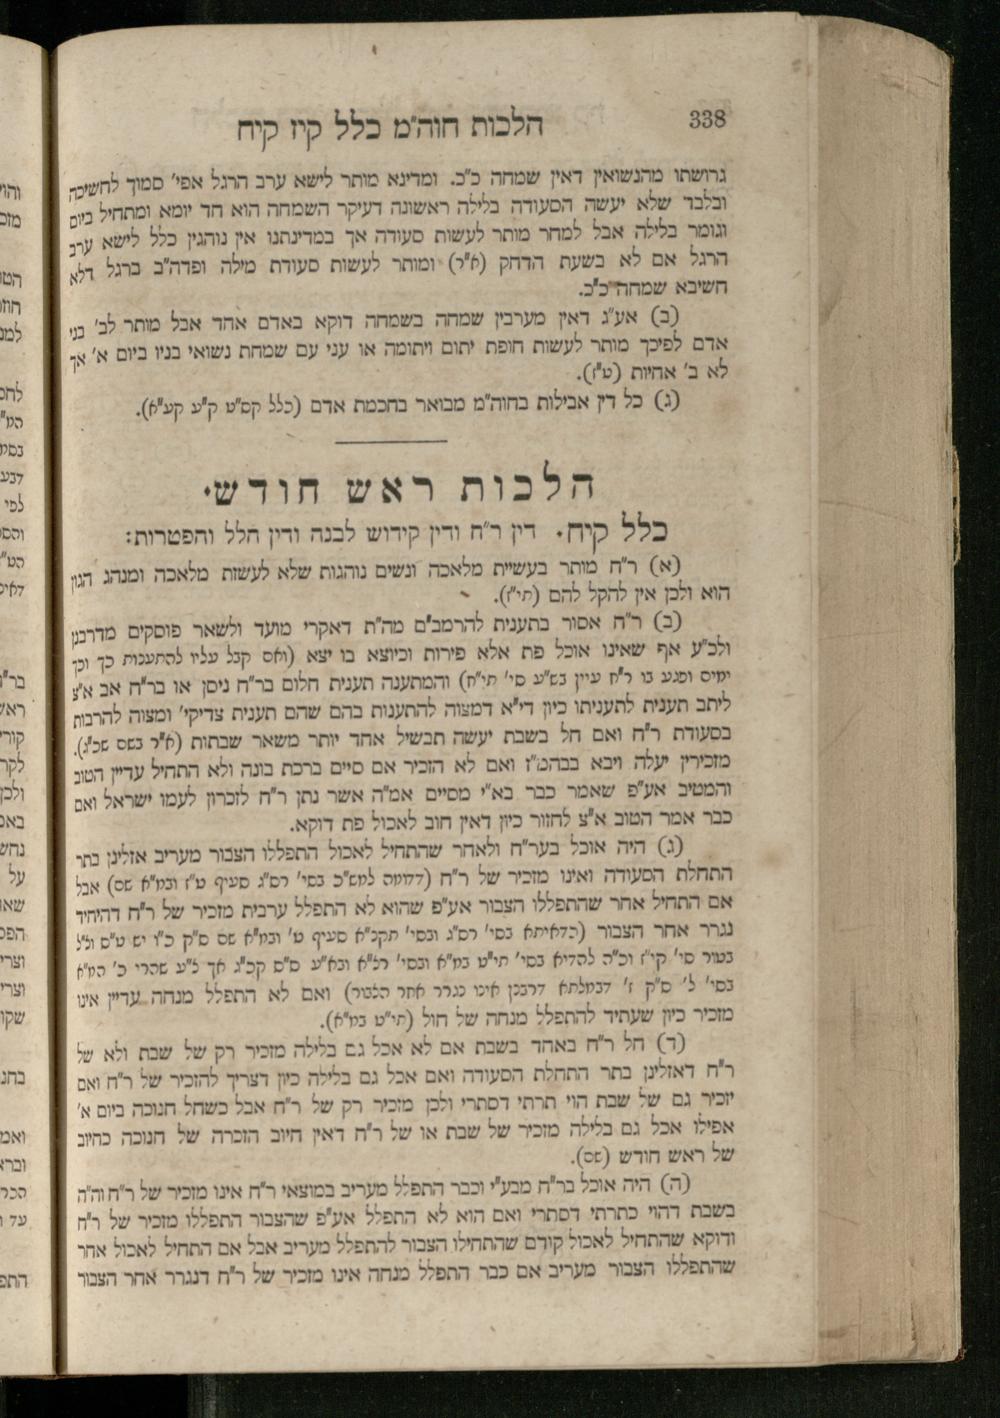 338
הלכות חוה״מ כלל קיז קיח
גרושתו מהנשואין דאין שמחה כ״כ. ומדינא מותר לישא ערב הרגל אפי׳ סמוך לחשיכה
ובלבד שלא יעשה הסעודה בלילה ראשונה דעיקר השמחה הוא חד יומא ומתחיל ביום
וגומר בלילה אבל למחר מותר לעשות סעודה אך במדינתנו אין נוהגין כלל לישא ערב
הרגל אם לא בשעת הדחק (א״ר) ומותר לעשות סעודת מילה ופדה״ב ברגל דלא
חשיבא שמחה כ״כ.
(ב) אע״ג דאין מערבין שמחה בשמחה דוקא באדם אחד אבל מותר לב׳ בני
אדם לפיכך מותר לעשות חופת יתום ויתומה או עני עם שמחת נשואי בניו ביום א׳ אך
לא ב׳ אחיות (ט״ז).
(ג) כל דין אבילות בחוה״מ מבואר בחכמת אדם (כלל קס״ט ק״ע קע״א).
הלכות ראש חודש.
כלל קיח. דין ר״ח ודין קידוש לבנה ודין הלל והפטרות:
(א) ר״ח מותר בעשיית מלאכה ונשים נוהגות שלא לעשות מלאכה ומנהג הגון
הוא ולכן אין להקל להם (תי״ז).
(ב) ר״ח אסור בתענית להרמב״ם מה״ת דאקרי מועד ולשאר פוסקים מדרבנן
ולכ״ע אף שאינו אוכל פת אלא פירות וכיוצא בו יצא (ואם קבל עליו להתענות כך וכך
ימים ופגע בו ר״ח עיין בש״ע סי׳ תי״ח) והמתענה תענית חלום בר״ח ניסן או בר״ח אב א״צ
ליתב תענית לתעניתו כיון די״א דמצוה להתענות בהם שהם תענית צדיקי׳ ומצוה להרבות
בסעודת ר״ח ואם חל בשבת יעשה תבשיל אחד יותר משאר שבתות (א״ר בשם שכ״ג).
מזכירין יעלה ויבא בבהמ״ז ואם לא הזכיר אם סיים ברכת בונה ולא התחיל עדיין הטוב
והמטיב אע״פ שאמר כבר בא״י מסיים אמ״ה אשר נתן ר״ח לזכרון לעמו ישראל ואם
כבר אמר הטוב א״צ לחזור כיון דאין חוב לאכול פת דוקא.
(ג) היה אוכל בער״ח ולאחר שהתחיל לאכול התפללו הצבור מעריב אזלינן בתר
התחלת הסעודה ואינו מזכיר של ר״ח (דדומה למש״כ בסי׳ רס״ג סעיף ט״ז ובמ״א שם) אבל
אם התחיל אחר שהתפללו הצבור אע״פ שהוא לא התפלל ערבית מזכיר של ר״ח דהיחיד
נגרר אחר הצבור (כדאיתא בסי׳ רס״ג ובסי׳ תקנ״א סעיף ט׳ ובמ״א שם ס״ק כ״ו יש ט״ס וצ״ל
בטור סי׳ קי״ז וכ״ה להדיא בסי׳ תי״ט במ״א ובסי׳ רל״א ובא״ע ס״ס קכ״ג אך ל״ע שהרי כ׳ המ״א
בסי׳ ל׳ ס״ק ז׳ דבמלתא דרבנן אינו נגרר אחר הצבור) ואם לא התפלל מנחה עדיין אינו
מזכיר כיון שעתיד להתפלל מנחה של חול (תי״ט במ״א).
(ד) חל ר״ח באחד בשבת אם לא אכל גם בלילה מזכיר רק של שבת ולא של
ר״ח דאזלינן בתר התחלת הסעודה ואם אכל גם בלילה כיון דצריך להזכיר של ר״ח ואם
יזכיר גם של שבת הוי תרתי דסתרי ולכן מזכיר רק של ר״ח אבל כשחל חנוכה ביום א׳
אפילו אכל גם בלילה מזכיר של שבת או של ר״ח דאין חיוב הזכרה של חנוכה כחיוב
של ראש חודש (שם).
(ה) היה אוכל בר״ח מבע״י וכבר התפלל מעריב במוצאי ר״ח אינו מזכיר של ר״ח וה״ה
בשבת דהוי כתרתי דסתרי ואם הוא לא התפלל אע״פ שהצבור התפללו מזכיר של ר״ח
ודוקא שהתחיל לאכול קודם שהתחילו הצבור להתפלל מעריב אבל אם התחיל לאכול אחר
שהתפללו הצבור מעריב אם כבר התפלל מנחה אינו מזכיר של ר״ח דנגרר אחר הצבור